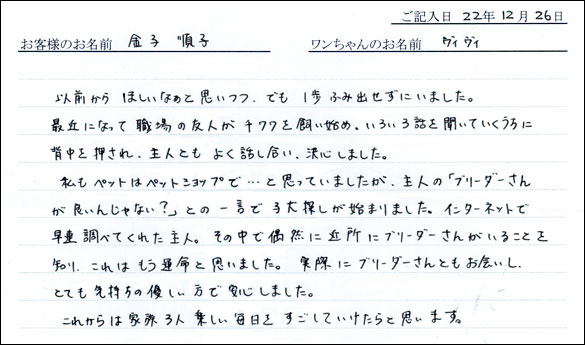 ご記入日 22年 12月 26日
お客様のお名前 金子 順子 ワンちゃんのお名前 ヴィヴィ
以前から ほしいなぁと思いつつ、でも 1歩ふみ出せずにいました。
最近になって 職場の友人が チワワを飼い始め、いろいろ話を聞いていくうちに
背中を押され、主人とも よく話し合い、決心しました。
私もペットはペットショップで…と思っていましたが、主人の「ブリーダーさん
が良いんじゃない?」との 一言で 3大探しが始まりました。インターネットで
早速 調べてくれた主人。その中で偶然に 近所にブリーダーさんがいることを
知り、これは もう運命と思いました。 実際にブリーダーさんともお会いし、
とても 気持ちの優しい方で安心しました。
これからは家族3人 楽しい毎日を すごしていけたらと思います。